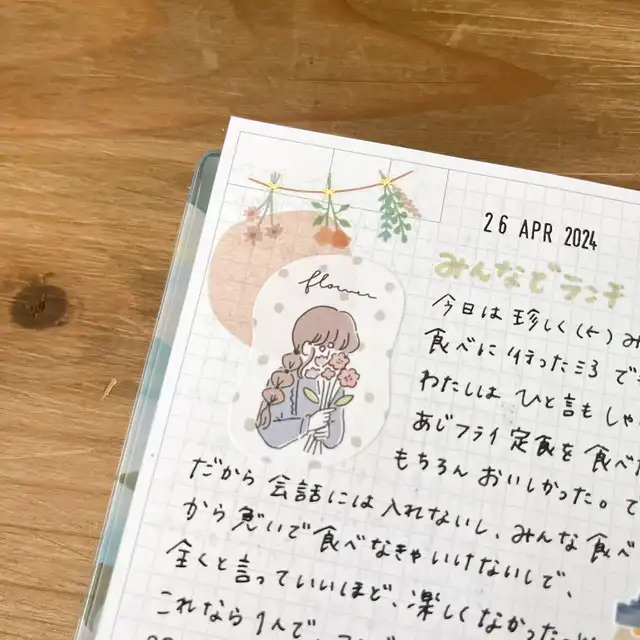 26 APR 2024
みんなでランチ
flower
今日は珍しく(?)み
食べに行ったころで
わたしはひと言もしゃ
あじフライ定食を食べ
もちろんおいしかった。で
だから会話には入れないし、みんな食べ
から急いで食べなきゃいけないしで、
全くと言っていいほど、楽しくなかった
これなら1人で